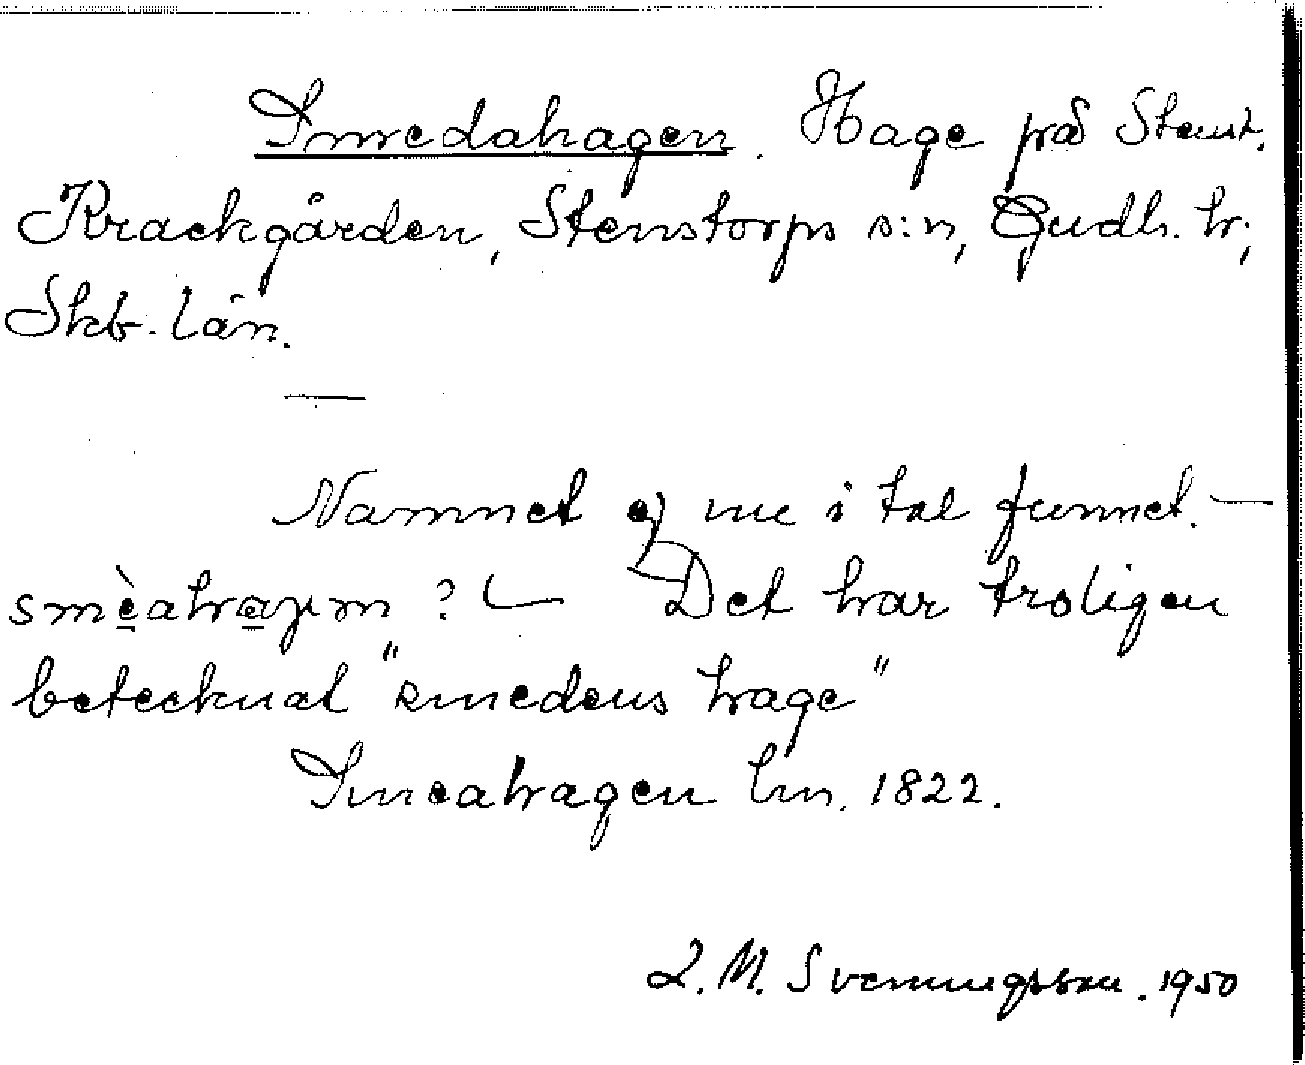 Smedahagen. Hage på Stenst.
Krackgården, Stenstorps s:n, Gudh. h;
Skb. län.
—
Namnet ej nu i tal funnet. —
smèahaɡɪn ? — Det har troligen
betecknat "smedens hage"
Smeahagen lm. 1822.
L. M. Svenungsson. 1950